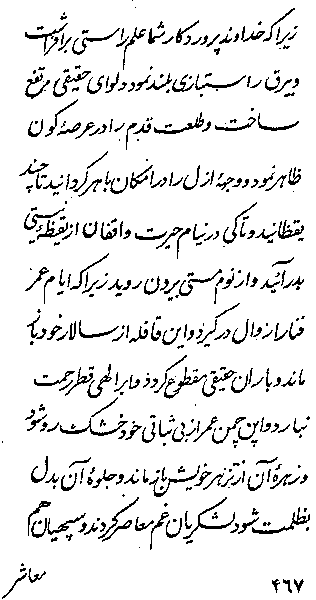 زیرا که خداوند پروردگار شما علم راستی برافراشت
و بیرق راستبازی بلند نمود و لوای حقیقی مرتفع
ساخت و طلعت قدم را در عرصهٔ کون
ظاهر نمود و وجههٔ ازل را در امکان باهر گردانید تا چند
یقظانید و تا کی در نیام حیرت و اقفان از یقظهٔ نیستی
بدر آئید و از نوم مستی بیرون روید زیرا که ایام عمر
فنا را زوال در گیرد و این قافله از سالار خود باز
ماند و باران حقیقی مقطوع گردد و ابر الهی قطر رحمت
نبارد و این چمن عمر از بی ثباتی خود خشک رو شود
و زهرهٔ آن از تزهر خویش باز ماند و جلوهٔ آن بدل
بظلمت شود لشکریان غم معاصر کردند و سپهیان هم
معاشر
۴۶۷